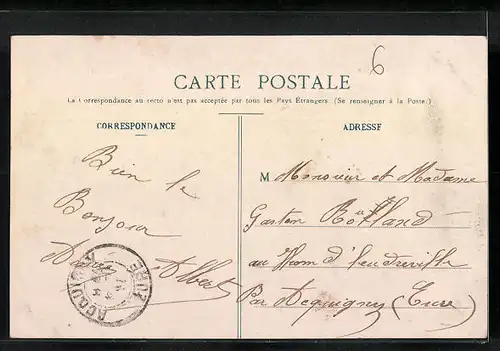 6
CARTE POSTALE
La Correspondance au recto n'est pas acceptée par tous les Pays Étrangers. (Se renseigner à la Poste.)
CORRESPONDANCE
ADRESSE
Bien le
Bonjour
Albert
ACQUIGNY
EURE
M Monsieur et Madame
Gaston
au d'heudreville
Par Acquigny (Eure)